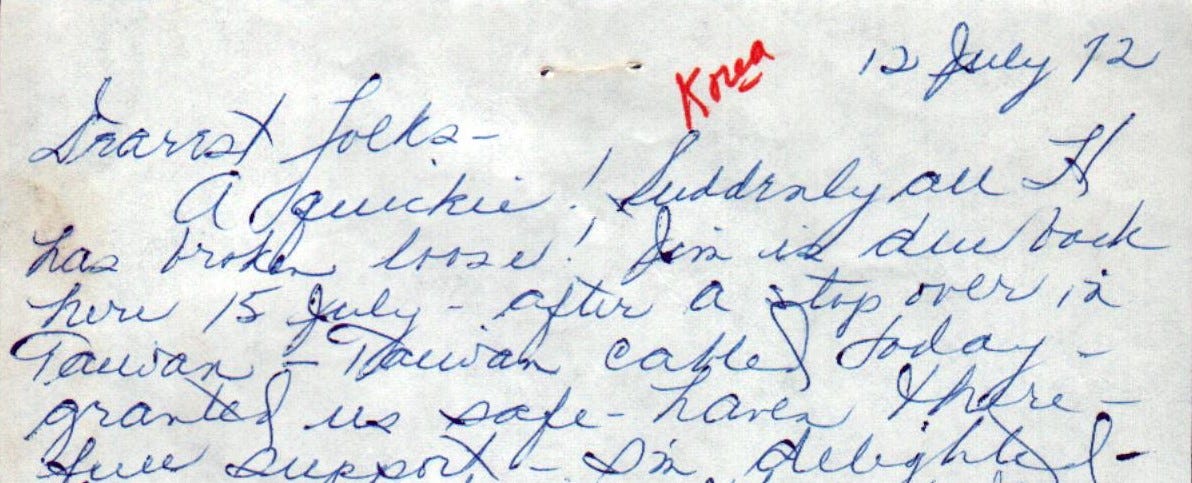 Korea
12 July 72
Dearest folks-
A quickie! Suddenly all H
has broken loose! Jim is due back
here 15 July - after a stop over in
Taiwan - Taiwan cabled today -
granted us safe-haven there -
full support - I'm delighted -